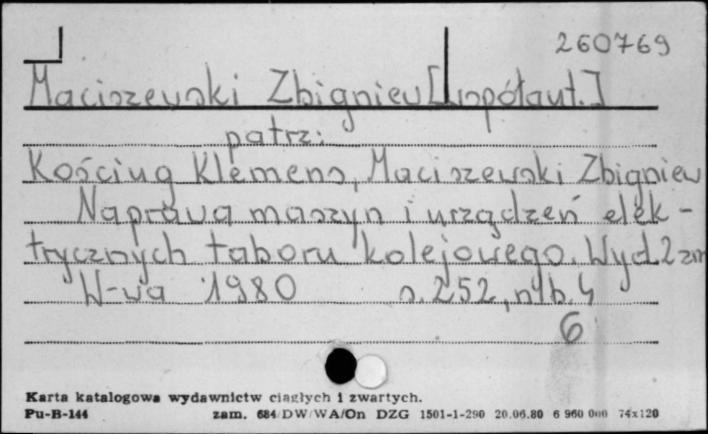 260769
Maciszewski Zbigniew [współaut.]
patrz:
Kościug Klemens, Maciszewski Zbigniew
Naprawa maszyn i urządzeń elek-
trycznych taboru kolejowego. Wyd 2 zm
W-wa 1980 s. 252, nlb. 4
6
Karta katalogowa wydawnictw ciągłych i zwartych.
Pu-B-144 zam. 684/DW/WA/On DZG 1501-1-290 20.06.80 6 960 000 74x120